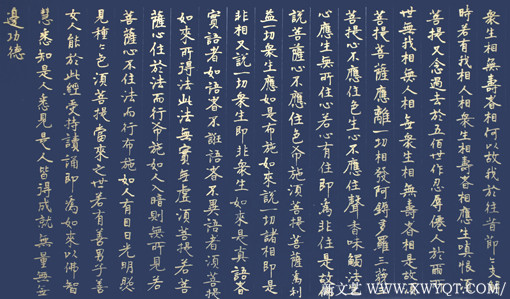 衆生相無壽者相何以故我於往昔節々支
時若有我相人相衆生相壽者相應生嗔恨
菩提又念過去於五百世作忍辱僊人於爾
世無我相無人相無衆生相無壽者相是故
菩提菩薩應離一切相發阿耨多羅三藐
菩提心不應住色生心不應住聲香味觸法
心應生無所住心若心有住即為非住是故
說菩薩心不應住色布施須菩提菩薩為利
益一切衆生應如是布施如來說一切諸相即是
非相又說一切衆生即非衆生如來是真語者
實語者如語者不誑語者不異語者須菩提
如來所得法此法無實無虛須菩提若菩
薩心住於法而行布施如人入暗則無所見若
菩薩心不住法而行布施如人有目日光明照
見種々色須菩提當來之世若有善男子善
女人能於此經受持讀誦即為如來以佛智
慧悉知是人悉見是人皆得成就無量無
邊功德
WWW.XWYQT.COM/